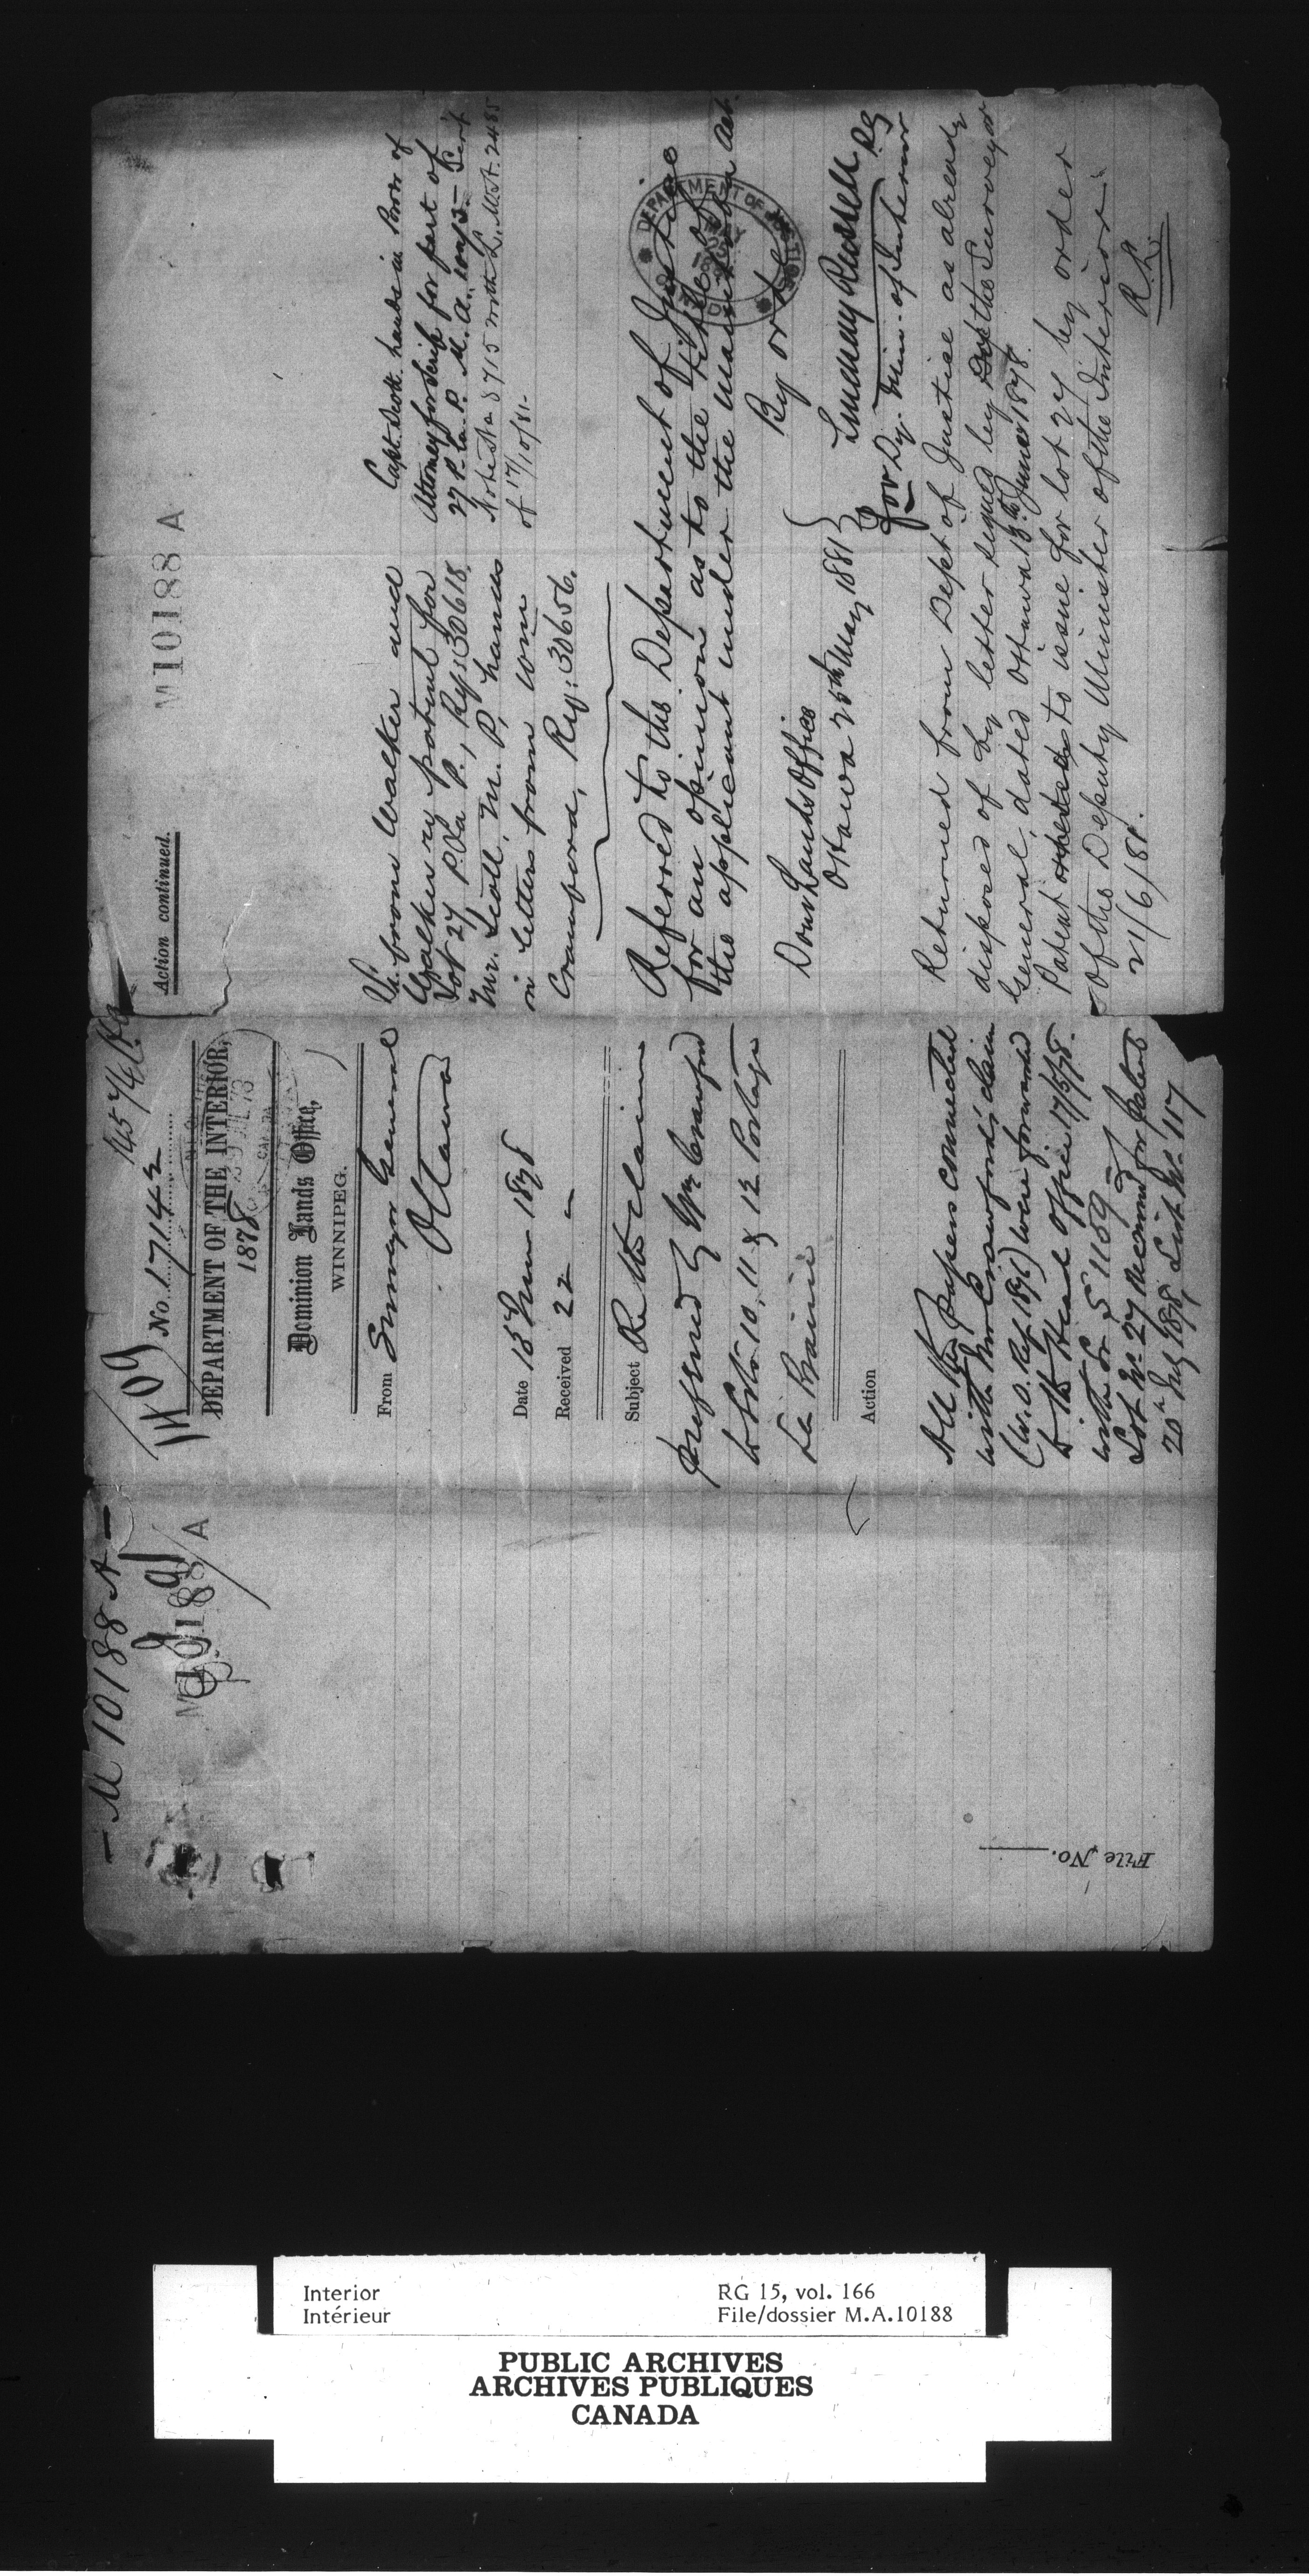 — M 10188 A —
M10188 A
1109
145746/84
No. 17142
DEPARTMENT OF THE INTERIOR,
1878
Dominion Lands Office,
WINNIPEG.
From Surveyor General
Ottawa
Date 13th June 1878
Received 22 —
Subject Re the claim
preferred by Wm Crawford
to Lots 10, 11 & 12 Portage
La Prairie
Action
All the papers connected
with Wm Crawford's claim
(W.O. Ref 1896) were forwarded
to the Head Office 17/5/78.
with Lr. S 1189
Lot No. 27 Recomd for patent
20th July 1878, List No. 117
File No.
Action continued.
M10188 A
from Walker and
Walker re patent for
Lot 27 P. La P., Reg: 30618.
Mr. Scott, M.P, hands
in letter from Wm
Crawford, Reg: 30656.
Capt. Scott hands in Power of
Attorney for Scrip for part of
27 P. La P. M.A.
8715 North
of 17/10/81-
Referred to the Department of Justice
for an opinion as to the title of
the applicant under the Manitoba Act.
By order
Dom Lands Office
Ottawa 25th May 1881
Lindsay Russell
for Dy. Min. of Interior
DEPARTMENT OF JUSTICE
Returned from Dept of Justice as already
disposed of by letter signed by the Surveyor
General, dated Ottawa 13th June 1878.
Patent to issue for lot 27 by order
of the Deputy Minister of the Interior.
21/6/81.
R.R.
Interior
Intérieur
RG 15, vol. 166
File/dossier M.A.10188
PUBLIC ARCHIVES
ARCHIVES PUBLIQUES
CANADA